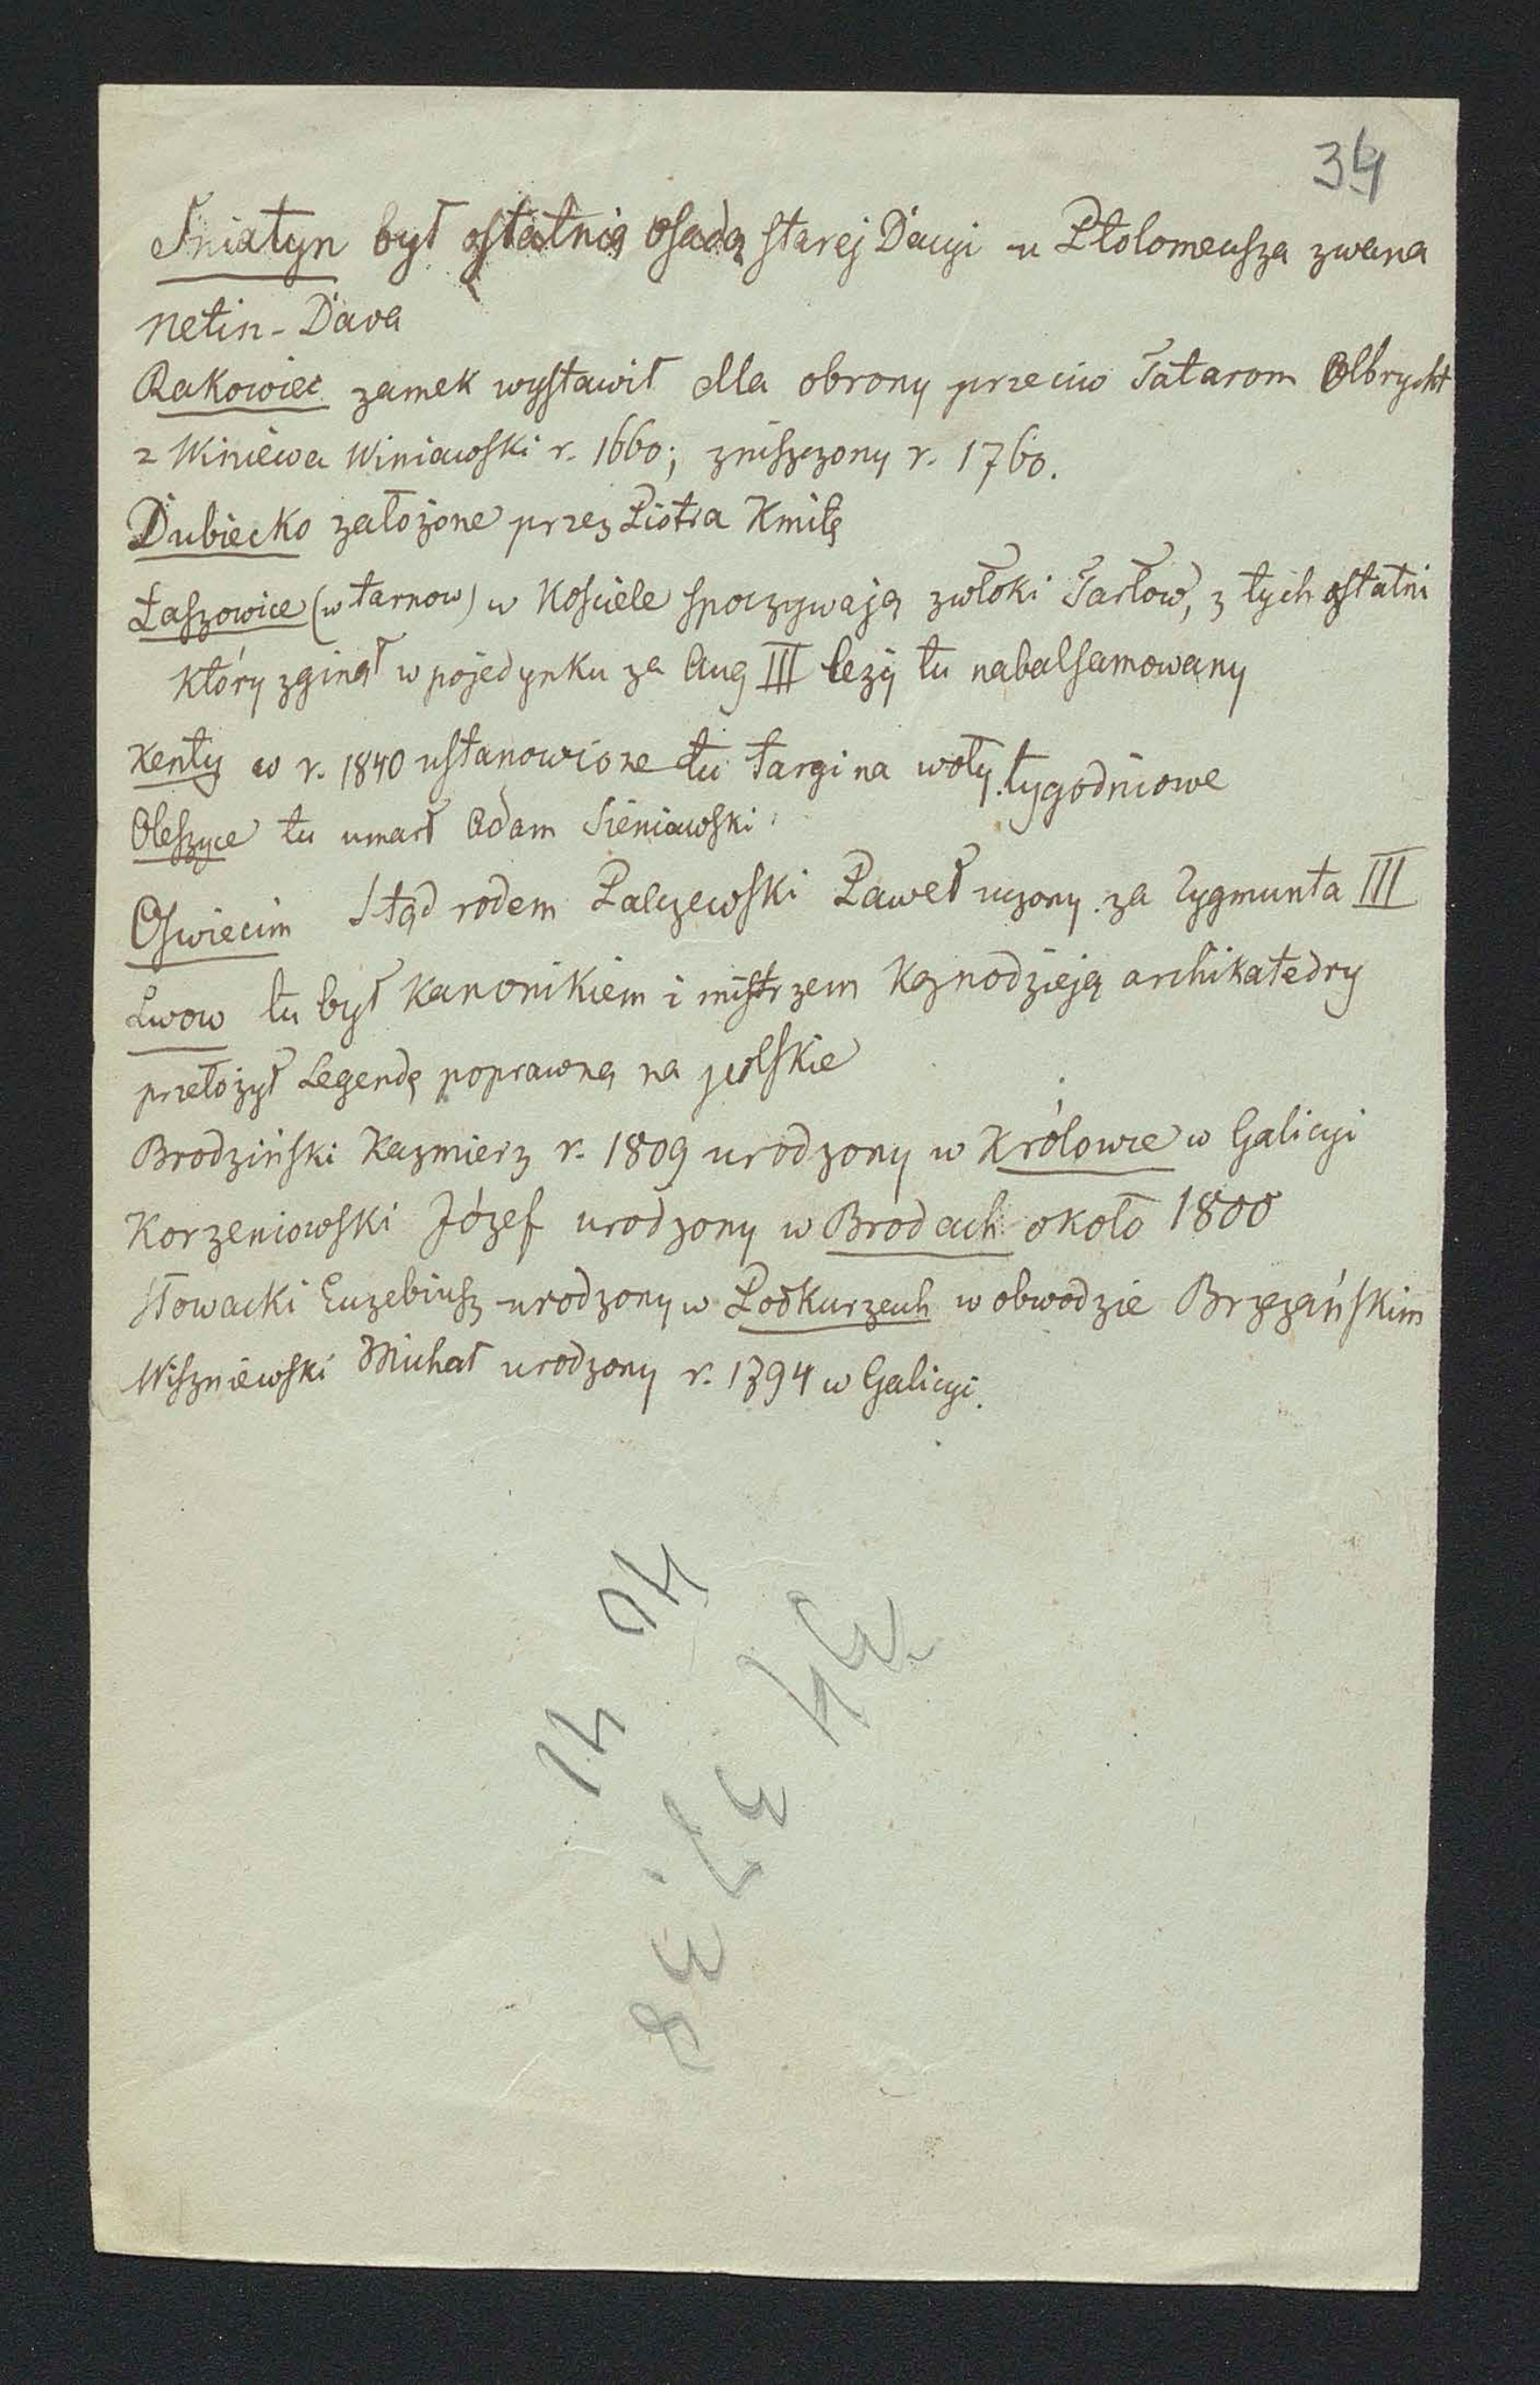 34
Sniatyn był ostatnią osadą starej Dacyi u Ptolomeusza zwana
Netin-Dava
Rakowiec zamek wystawił dla obrony przeciw Tatarom Olbrycht
z Winiewa Winiawski r. 1660; zniszczony r. 1760.
Dubiecko założone przez Piotra Kmitę
Łaszowice (w tarnow) w Kosciele spoczywają zwłoki Tarłow, z tych ostatni
który zginął w pojedynku za Aug III leży tu nabalsamowany
Kenty w r. 1840 ustanowione tu targi na woły tygodniowe
Oleszyce tu umarł Adam Sieniawski
Oswiecim Stąd rodem Palczewski Paweł uczony za Zygmunta III
Lwow tu był Kanonikiem i mistrzem Kaznodzieją archikatedry
przełożył Legendę poprawną na polskie
Brodziński Kazmierz r. 1809 urodzony w Królowie w Galicyi
Korzeniowski Józef urodzony w Brodach około 1800
Słowacki Euzebiusz urodzony w Podkurzech w obwodzie Brzezańskim
Wiszniewski Michał urodzony r. 1794 w Galicyi.
40
41
34
37.
38